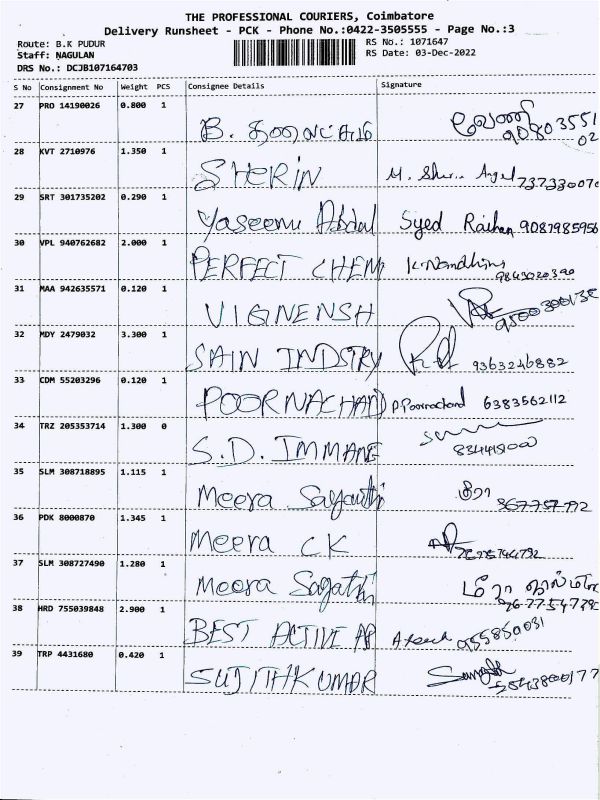 THE PROFESSIONAL COURIERS, Coimbatore
Delivery Runsheet - PCK - Phone No.:0422-3505555 - Page No.:3
Route: B.K PUDUR RS No.: 1071647
Staff: NAGULAN RS Date: 03-Dec-2022
DRS No.: DCJB107164703
S No Consignment No Weight PCS Consignee Details Signature
27 PRO 14190026 0.800 1
B.
28 KVT 2710976 1.350 1
SHERIN
29 SRT 301735202 0.290 1
Yaseenu Abdul Syed Raihan 9087985956
30 VPL 940762682 2.000 1
PERFECT CHEM K. Nandhini
31 MAA 942635571 0.120 1
VIGNENSH
32 MDY 2479032 3.300 1
SAIN INDSTRY 9363246882
33 CDM 55203296 0.120 1
POORNACHAND P. Poornachand 6383562112
34 TRZ 205353714 1.300 0
S.D. IMMANE
35 SLM 308718895 1.115 1
Meera Sagayathi மீரா
36 PDK 8000870 1.345 1
Meera CK
37 SLM 308727490 1.280 1
Meera Sagathi மீரா
38 HRD 755039848 2.900 1
BEST ACTIVE AP
39 TRP 4431680 0.420 1
SUJITHKUMAR